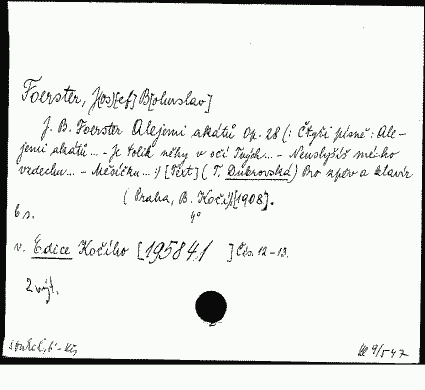 Foerster, J[os]ef] B[ohuslav]
J. B. Foerster Alejemi akátů Op. 28 (: Čtyři písně: Ale-
jemi akátů... - Je tolik něhy v očí Tvých... - Neuslyšíš mého
vzdechu... - Měsíčku...:) [Text] (T. Dubrovská) Pro zpěv a klavír
(Praha, B. Kočí)[1908].
6 s. 4°
v. Edice Kočího [195841 ] Čís. 12-13.
2 výt.
III 9/547